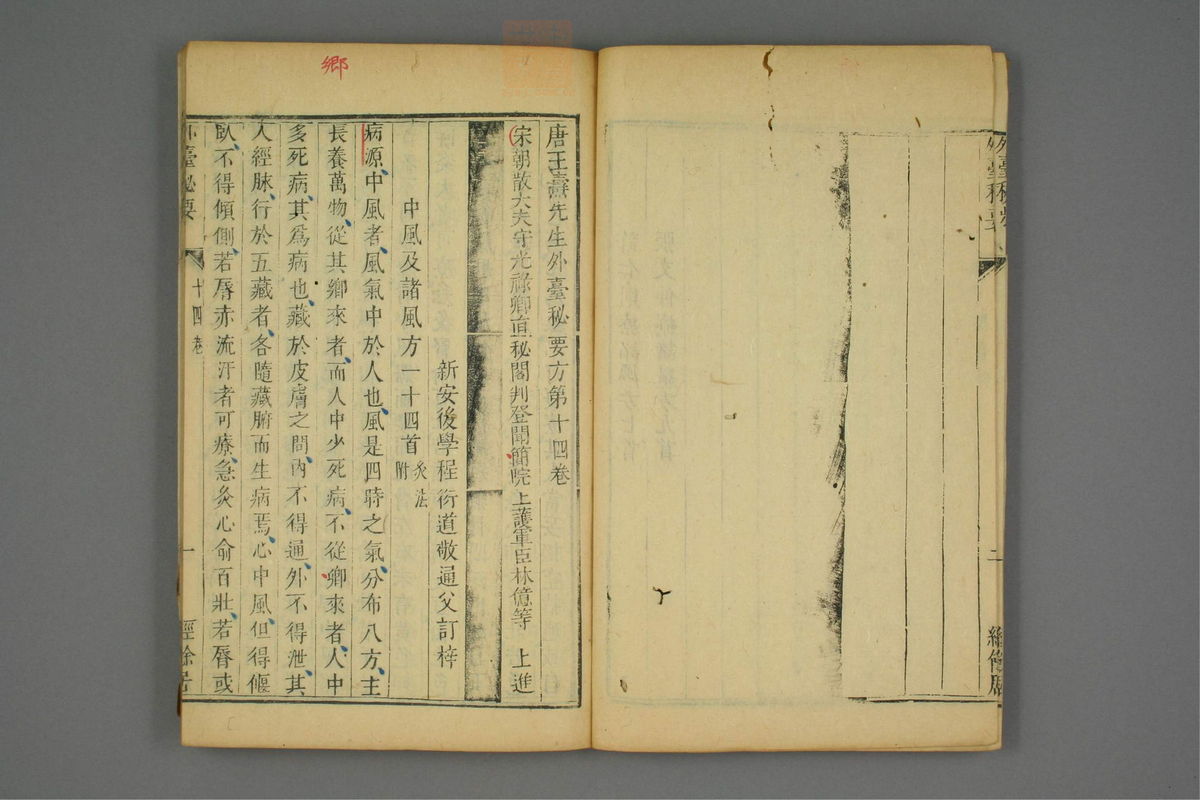 外臺秘要
二
鄉
唐王燾先生外臺秘要方第十四卷
宋朝散大夫守光祿卿直秘閣判登聞簡院上護軍臣林億等 上進
新安後學程衍道敬通父訂梓
中風及諸風方一十四首 灸法附
病源中風者風氣中於人也風是四時之氣分布八方主
長養萬物從其鄉來者而人中少死病不從鄉來者人中
多死病其為病也藏於皮膚之間內不得通外不得泄其
人經脉行於五藏者各隨藏腑而生病焉心中風但得偃
臥不得傾側若唇赤流汗者可療急灸心俞百壯若唇或
外臺秘要
十四卷
一
經餘居